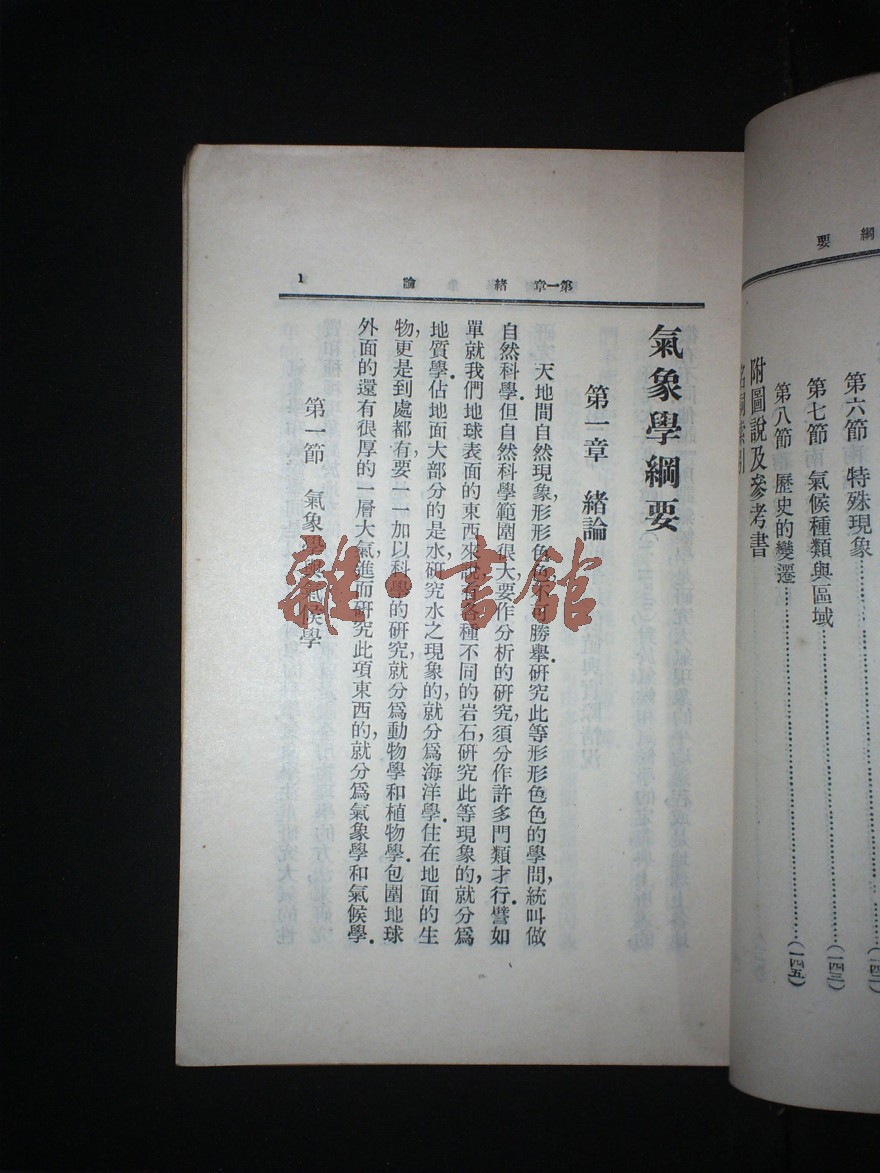 綱要
第六節 特殊現象
第七節 氣候種類與區域……(一四三)
第八節 歷史的變遷……(一四五)
附圖說及參考書
第一章 緒論 1
氣象學綱要
第一章 緒論
天地間自然現象,形形色色,不可勝舉.研究此等形形色色的學問,統叫做
自然科學.但自然科學範圍很大,要作分析的研究,須分作許多門類才行.譬如
單就我們地球表面的東西來說,有各種不同的岩石,研究此等現象的,就分爲
地質學.佔地面大部分的是水,研究水之現象的,就分爲海洋學.住在地面的生
物,更是到處都有,要一一加以科學的研究,就分爲動物學和植物學.包圍地球
外面的還有很厚的一層大氣,進而研究此項東西的,就分爲氣象學和氣候學.
第一節 氣象學與氣候學
雜·書館